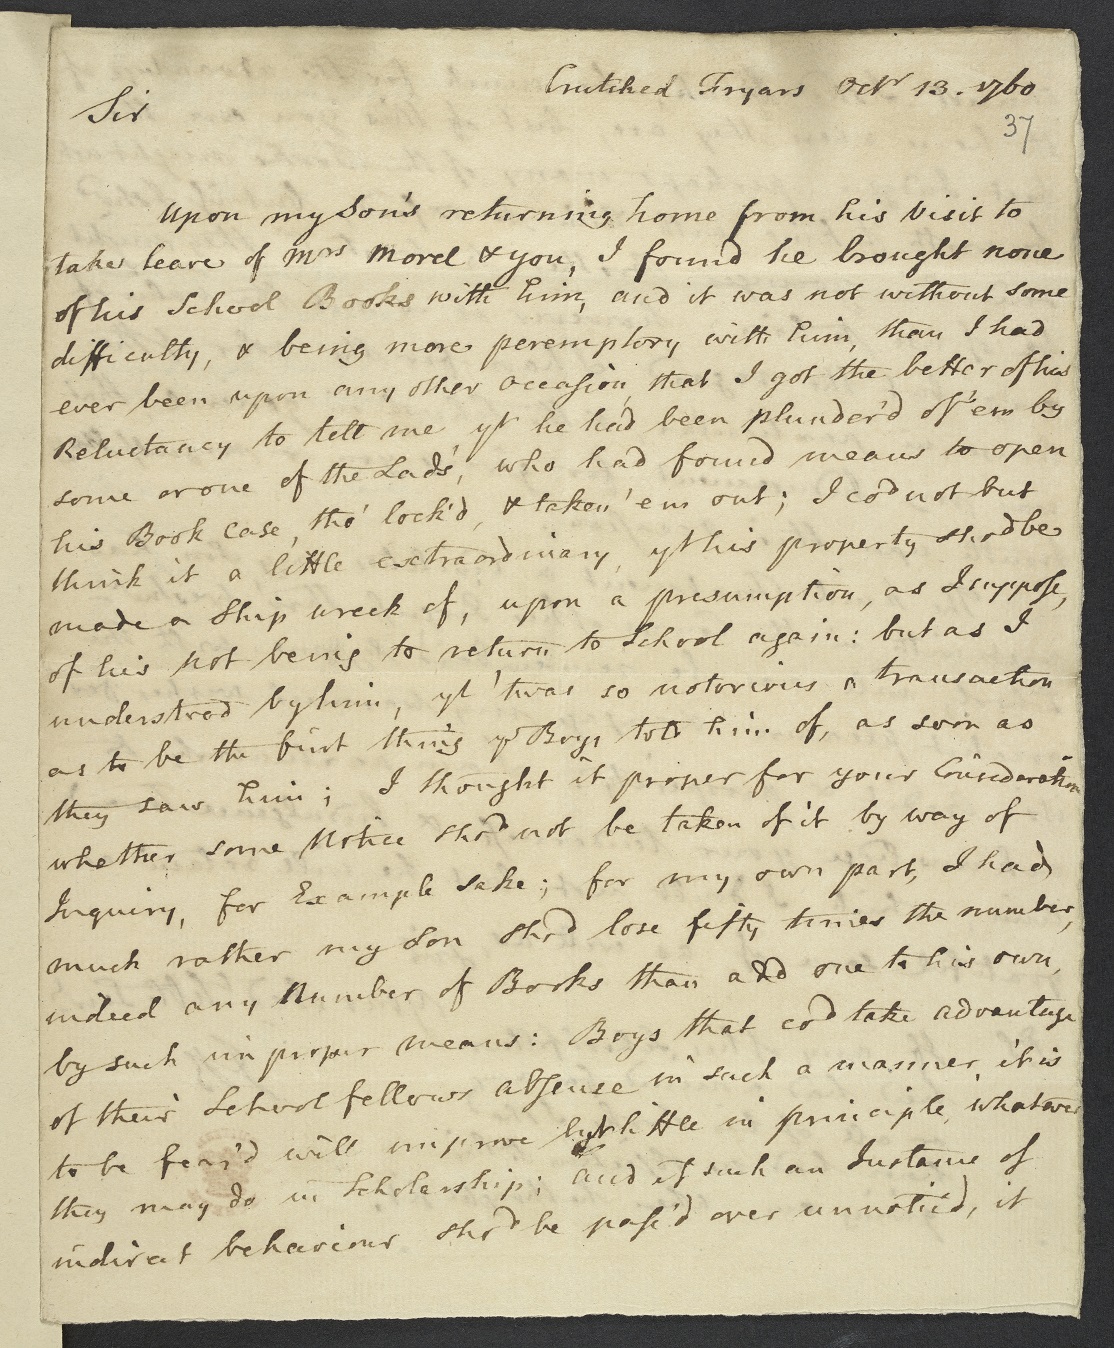 Crutched Fryars Octr 13. 1760
Sir
37
Upon my Son's returning home from his Visit to
take leave of Mrs Morel & you, I found he brought none
of his School Books with him, and it was not without some
difficulty, & being more peremptory with him, than I had
ever been upon any other occasion, that I got the better of his
Reluctancy to tell me, yt he had been plunder'd of 'em by
some or one of the Lads, who had found means to open
his Book case, tho' lock'd, & taken 'em out; I cod not but
think it a little extraordinary, yt his property shod be
made a Ship wreck of, upon a presumption, as I suppose,
of his not being to return to School again: but as I
understood by him, yt 'twas so notorious a transaction
as to be the first thing ye Boys told him of, as soon as
they saw him; I thought it proper for your Consideration
whether some Notice shod not be taken of it by way of
Inquiry, for Example sake; for my own part, I had
much rather my Son shod lose fifty times the number,
indeed any Number of Books than add one to his own,
by such improper means: Boys that cod take advantage
of their School fellows absense in such a manner, it is
to be fear'd will improve but little in principle, whatever
they may do in Scholarship; and if such an Instance of
indirect behaviour shod be pass'd over unnotic'd, it